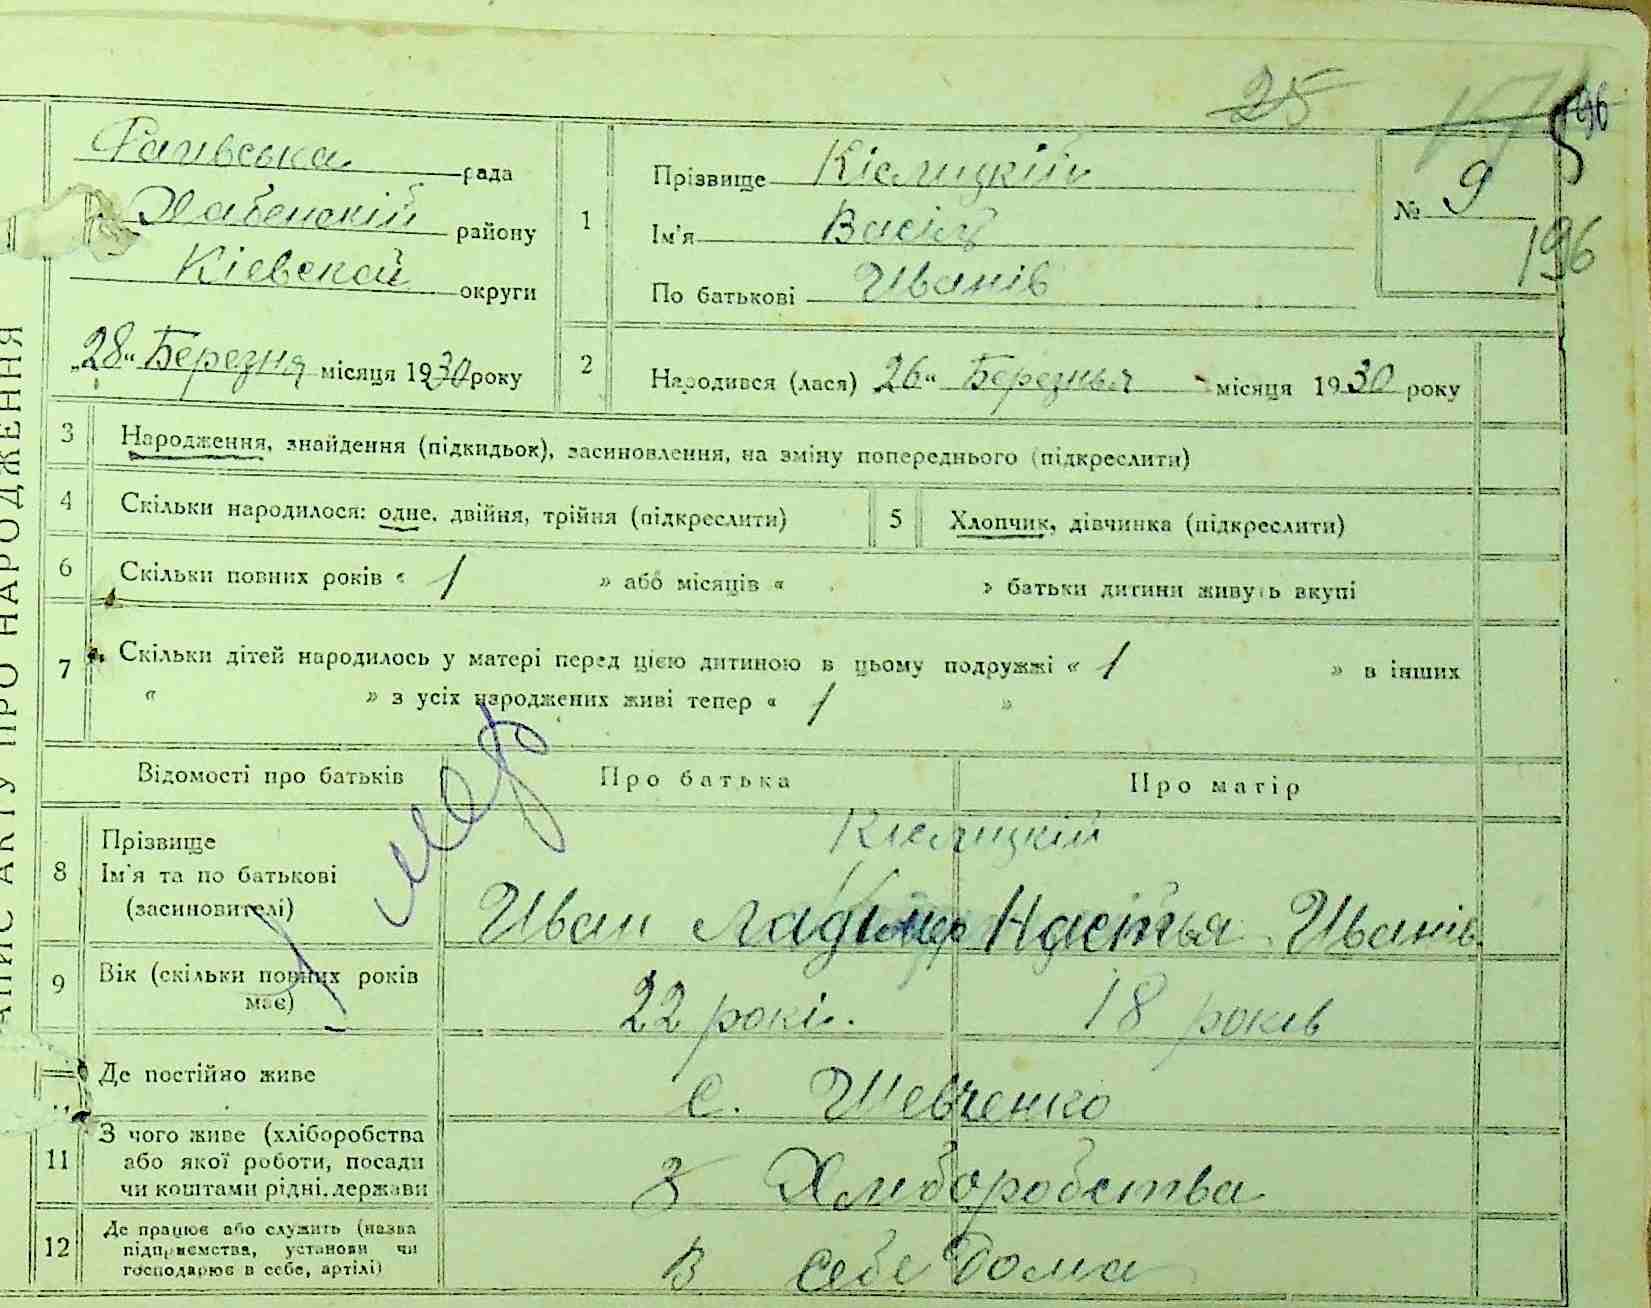 25
196
АПИС АКТУ ПРО НАРОДЖЕННЯ
рада
Хабенскій району
Кіевской округи
„28“ Березня місяця 1930 року
1
Прізвище Кіслицкій
Ім'я Васіль
По батькові Иванів
№ 9
196
2
Народився (лася) 26“ Березнья місяця 1930 року
3 Народження, знайдення (підкидьок), засиновлення, на зміну попереднього (підкреслити)
4 Скільки народилося: одне, двійня, трійня (підкреслити)
5 Хлопчик, дівчинка (підкреслити)
6 Скільки повних років « 1 » або місяців « » батьки дитини живуть вкупі
7 Скільки дітей народилось у матері перед цією дитиною в цьому подружжі « 1 » в інших
« » з усіх народжених живі тепер « 1 »
Відомості про батьків
Про батька
Про матір
8
Прізвище
Ім'я та по батькові
(засиновителі)
Кіслицкій
Иван Настья Иванів
9
Вік (скільки повних років
має)
22 рокі.
18 років
Де постійно живе
с. Шевченко
11
З чого живе (хліборобства
або якої роботи, посади
чи коштами рідні, держави
З Хлиборобства
12
Де працює або служить (назва
підприємства, установи чи
господарює в себе, артілі)
В себе Дома